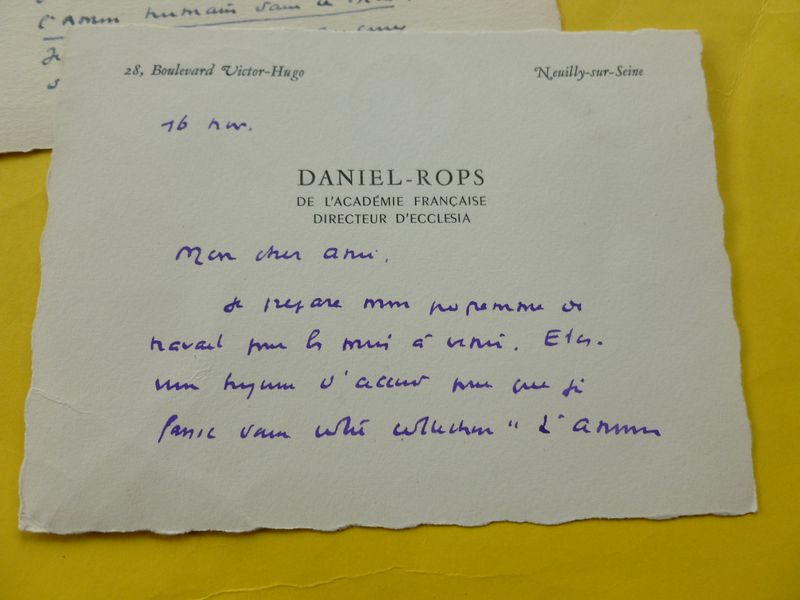 l'Amour humain dans la
Je
28, Boulevard Victor-Hugo
Neuilly-sur-Seine
16 nov.
DANIEL-ROPS
DE L'ACADÉMIE FRANÇAISE
DIRECTEUR D'ECCLESIA
Mon cher ami,
Je prépare mon programme de
travail pour les mois à venir. Etes-
vous toujours d'accord pour que je
fasse dans votre collection "L'Amour